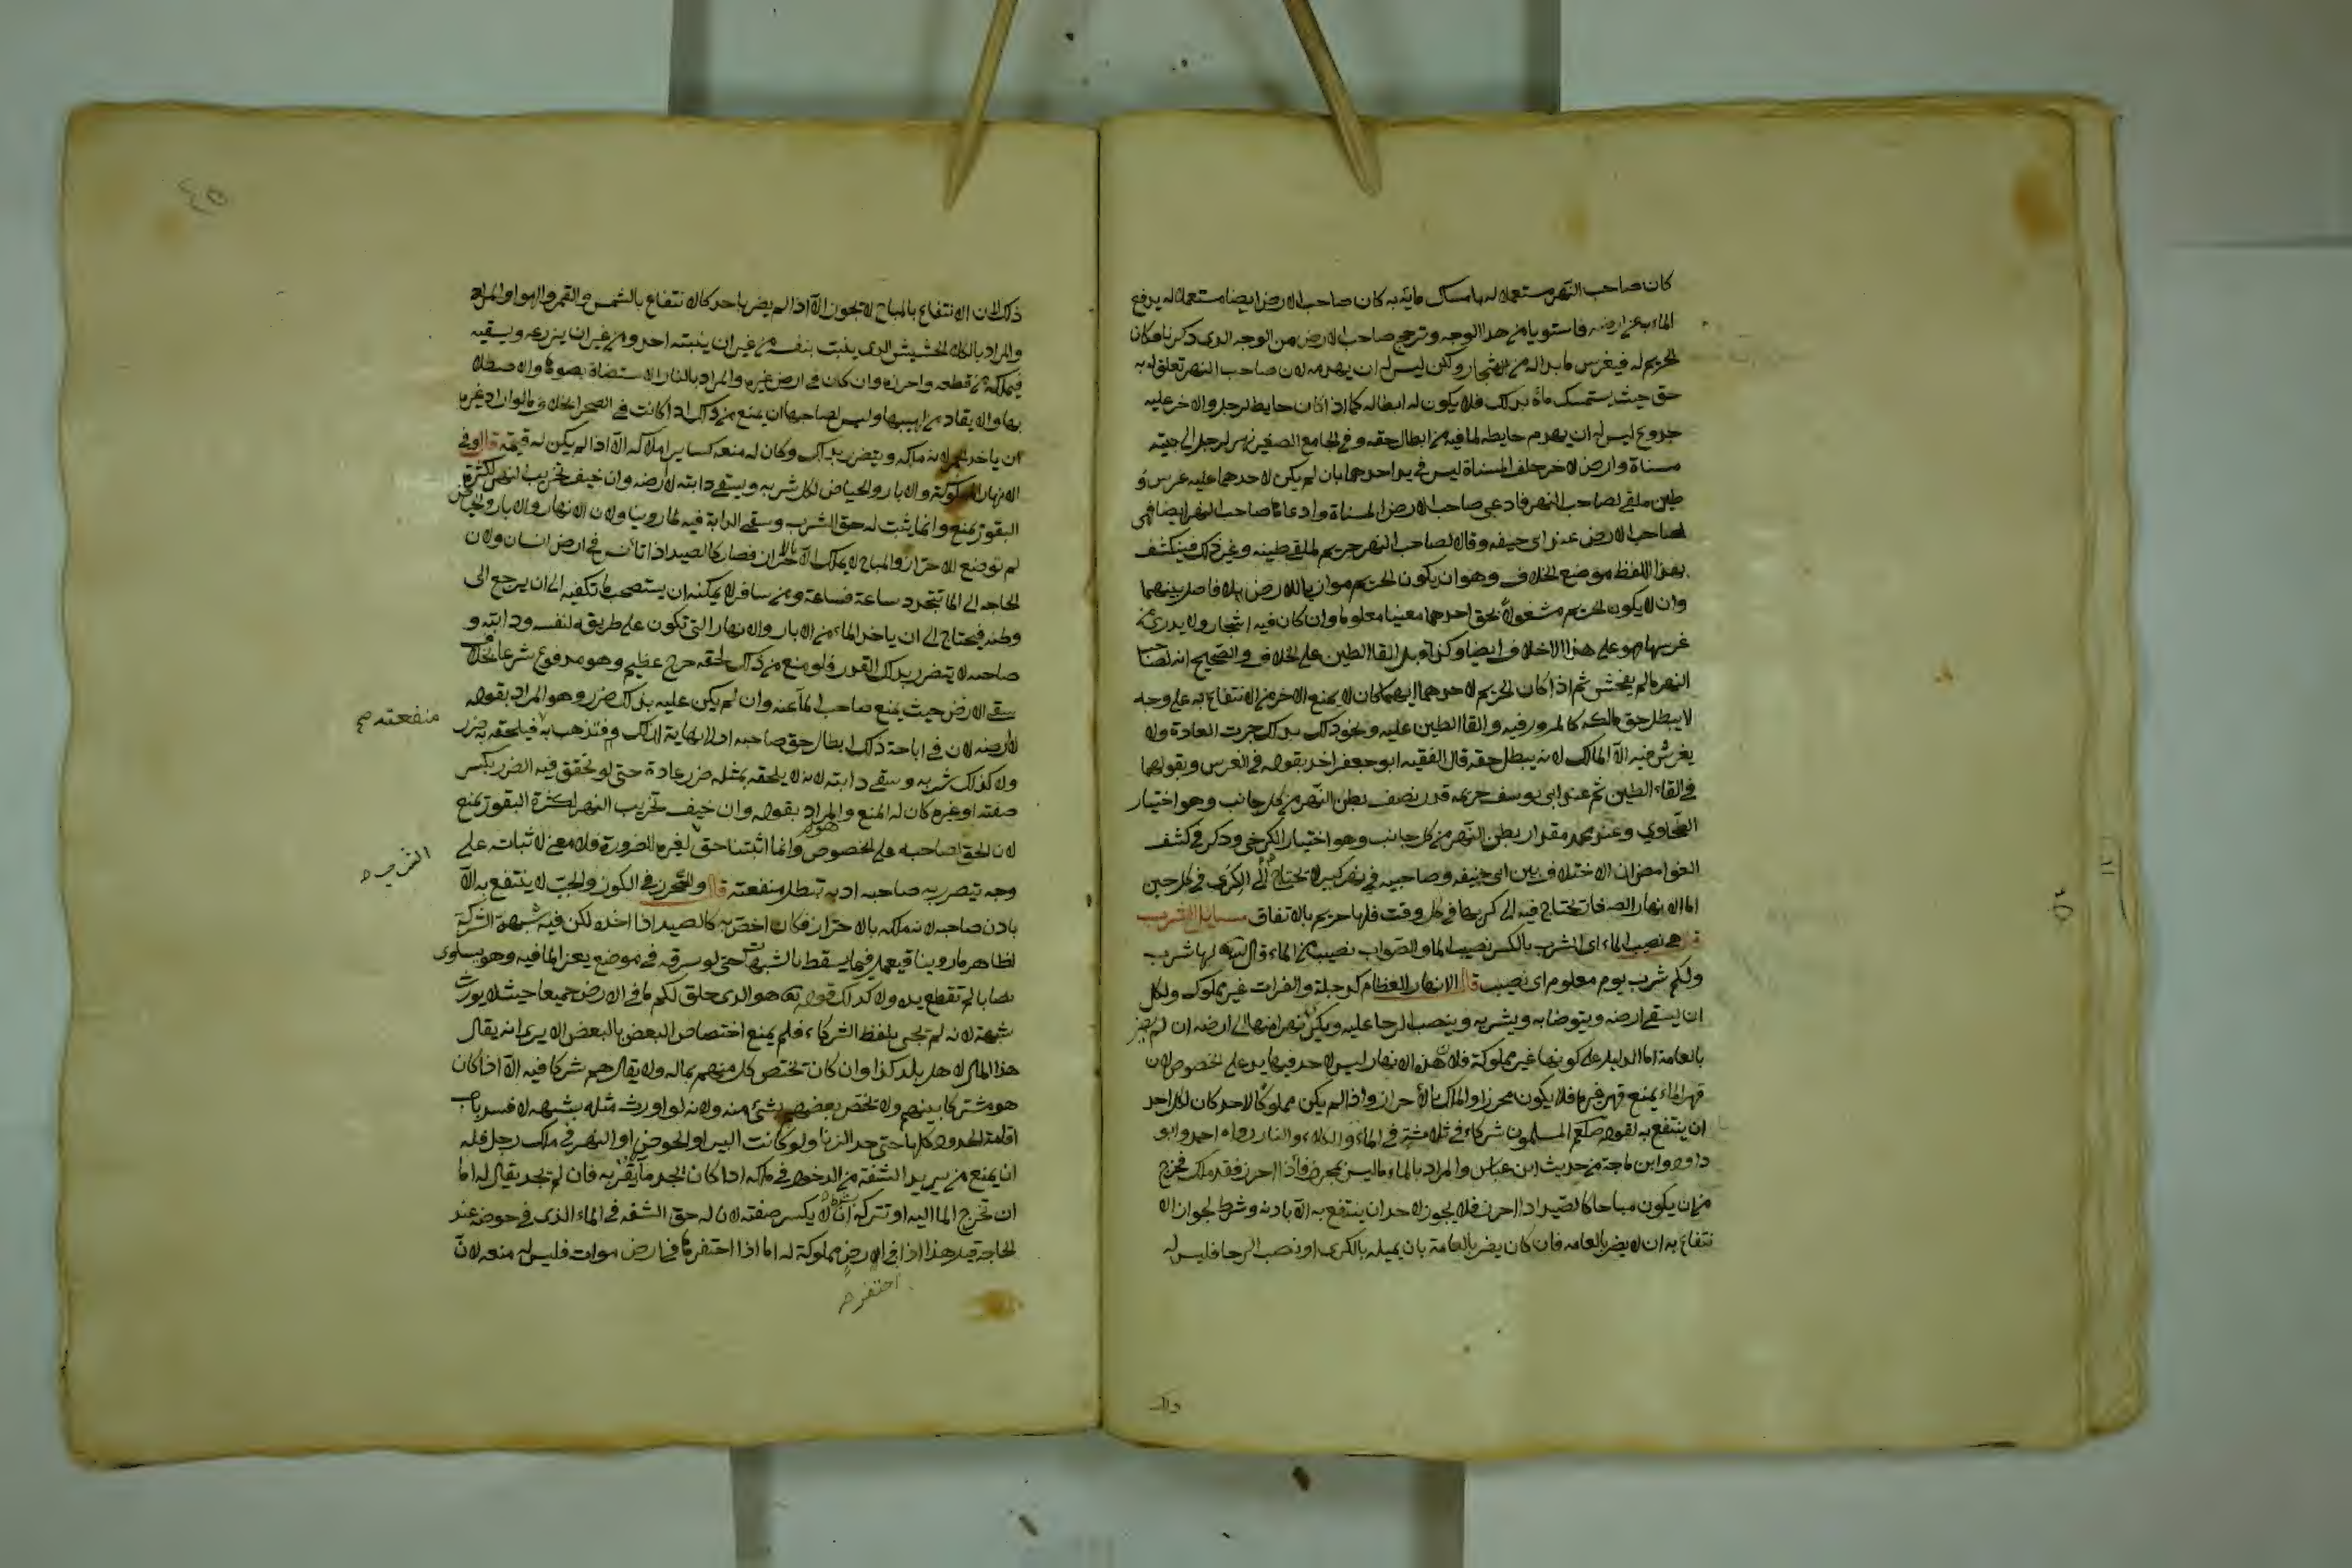 كان صاحب النهر مستعملا له بامساك مائه به كان صاحب الارض ايضا مستعملا له يدفع
الماء به عن ارضه فاستويا من هذا الوجه وترجح صاحب الارض من الوجه الذى ذكرنا فكان
الحريم له فيغرس ما بدا له من الاشجار ولكن ليس له ان يهدمه لان صاحب النهر تعلق له به
حق حيث يستمسك ماؤه بذلك فلا يكون له ابطاله كما اذا كان حايط لرجل والاخر عليه
جذوع ليس له ان يهدم حايطه لما فيه من ابطال حقه وفى الجامع الصغير نهر لرجل الى جنبه
مسناة وارض لاخر خلف المسناة ليس فى يد احدهما بان لم يكن لاحدهما عليه غرس و
طين ملقى لصاحب النهر فادعى صاحب الارض المسناة وادعاها صاحب النهر ايضا فهى
لصاحب الارض عند ابى حنيفه وقالا لصاحب النهر حريم لملقى طينه وغير ذلك فينكشف
بهذا اللفظ موضع الخلاف وهو ان يكون الحريم موازيا للارض بلا فاصل بينهما
وان لا يكون الحريم مشغولا بحق احدهما معينا معلوما وان كان فيه اشجار ولا يدرى من
غرسها فهو على هذا الاختلاف ايضا وكذا قيل القا الطين على الخلاف والصحيح انه لصاحب
النهر ما لم يفحش ثم اذا كان الحريم لاحدهما ايهما كان لا يمنع الاخر من الانتفاع به على وجه
لا يبطل حق مالكه كالمرور فيه والقا الطين عليه ونحو ذلك بذلك جرت العادة ولا
يغرس فيه الا المالك لانه يبطل حقه قال الفقيه ابو جعفر اخذ بقوله فى الغرس وبقولهما
فى القاء الطين ثم عند ابى يوسف حريمه قدر نصف بطن النهر من كل جانب وهو اختيار
الطحاوي وعند محمد مقدار بطن النهر من كل جانب وهو اختيار الكرخى وذكر فى كشف
الغوامض ان الاختلاف بين ابى حنيفه وصاحبيه فى نهر كبير لا يحتاج الى الكرى فى كل حين
اما الانهار الصغار تحتاج فيه الى كريها فى كل وقت فلها حريم بالاتفاق مسايل الشرب
قال هى نصيب الماء اى الشرب بالكسر نصيب الماء والصواب نصيب من الماء قال الله لها شرب
ولكم شرب يوم معلوم اى نصيب قال الانهار العظام كدجلة والفرات غير مملوك ولكل
ان يسقى ارضه ويتوضا به ويشربه وينصب الرحا عليه ويكرى نهرا منها الى ارضه ان لم يضر
بالعامة اما الدليل على كونها غير مملوكة فلان هذه الانهار ليس لاحد فيها يد على الخصوص لان
قهر الماء يمنع قهر غيره فلا يكون محرزا والملك بالاحراز واذا لم يكن مملوكا لاحد كان لكل احد
ان ينتفع به لقوله صلعم المسلمون شركاء فى ثلاث فى الماء والكلاء والنار رواه احمد وابو
داود وابن ماجة من حديث ابن عباس والمراد بالماء ما ليس بمحرز فاذا احرز فقد ملك فخرج
من ان يكون مباحا كالصيد اذا احرز فلا يجوز لاحد ان ينتفع به الا باذنه وشرط لجواز الا
نتفاع به ان لا يضر بالعامه فان كان يضر بالعامة بان يميله بالكرى او نصب الرحا فليس له
ذلك لان الانتفاع بالمباح لا يجوز الا اذا لم يضر باحد كالانتفاع بالشمس والقمر والهوا والمراد
والمراد بالكلاء الحشيش الذى ينبت بنفسه من غير ان ينبته احد ومن غير ان يزرعه ويسقيه
فيملكه من قطعه واحرزه وان كان فى ارض غيره والمراد بالنار الاستضاة بضوئها والاصطلا
بها والايقاد من لهيبها وليس لصاحبها ان يمنع من ذلك اذا كانت فى الصحرا بخلاف ما لو اراد غيره
ان ياخذ لانه ملكه ويتضرر بذلك وكان له منعه كساير املاكه الا اذا لم يكن له قيمة قال وفى
الانهار المملوكة والابار والحياض لكل شربه ويسقى دابته لا ارضه وان خيف تخريب النهر لكثرة
البقور يمنع وانما يثبت له حق الشرب وسقى الدابة فيه لما روينا ولان الانهار والابار والحياض
لم توضع للاحراز والمباح لا يملك الا بالاحراز فصار كالصيد اذا تانس فى ارض انسان ولان
الحاجه الى الما تتجدد ساعة فساعة ومن سافر لا يمكنه ان يستصحب ما يكفيه الى ان يرجع الى
وطنه فيحتاج الى ان ياخذ الماء من الابار والانهار التى تكون على طريقه لنفسه ودابته و
صاحبه لا يتضرر بذلك القدر فلو منع من ذلك لحقه حرج عظيم وهو مدفوع شرعا بخلاف
سقى الارض حيث يمنع صاحب الماء عنه وان لم يكن عليه بذلك ضرر وهو المراد بقوله
لا ارضه لان فى اباحة ذلك ابطال حق صاحبه اذ لا نهاية لذلك فتذهب به فيلحقه به ضرر
منفعته صح
ولا كذلك شربه وسقى دابته لانه لا يلحقه بمثله ضرر عادة حتى لو تحقق فيه الضرر بكسر
ضفته او غيره كان له المنع والمراد بقوله وان خيف تخريب النهر لكثرة البقور يمنع
لان الحق لصاحبه على الخصوص وانما اثبتنا حق لغيره للضرورة فلا معنى لاثبات على
وجه يتضرر به صاحبه اذ به تبطل منفعته قال والمحرز فى الكوز والجب لا ينتفع به الا
باذن صاحبه لانه ملكه بالاحراز فكان اختص به كالصيد اذا اخذه لكن فيه شبهة الشركة
لظاهر ما روينا فيعمل فيما يسقط بالشبهات حتى لو سرقه فى موضع يعز الما فيه وهو يساوى
نصابا لم تقطع يده ولا كذلك قوله هو الذى خلق لكم ما فى الارض جميعا حيث لا يورث
شبهة لانه لم يجئ بلفظ الشركاء فلم يمنع اختصاص البعض بالبعض الا يرى انه يقال
هذا المال لاهل بلد كذا وان كان تختص كل منهم بماله ولا يقال هم شركا فيه الا اذا كان
هو مشتركا بينهم ولا يختص بعضهم بشئ منه ولانه لو اورث مثله بشبهه لانسد باب
اقامة الحدود كلها حتى حد الزنا ولو كانت البير او الحوض او النهر فى ملك رجل فله
ان يمنع من يريد الشفة من الدخول فى ملكه اذا كان يجد ما بقربه فان لم يجد يقال له اما
ان تخرج الما اليه او تتركه بشرط ان لا يكسر ضفته لان له حق الشفه فى الماء الذى فى حوضه عند
الحاجة قيل هذا اذا فى ارض مملوكة له اما اذا احتفرها فى ارض موات فليس له منعه لان
احتفر صح